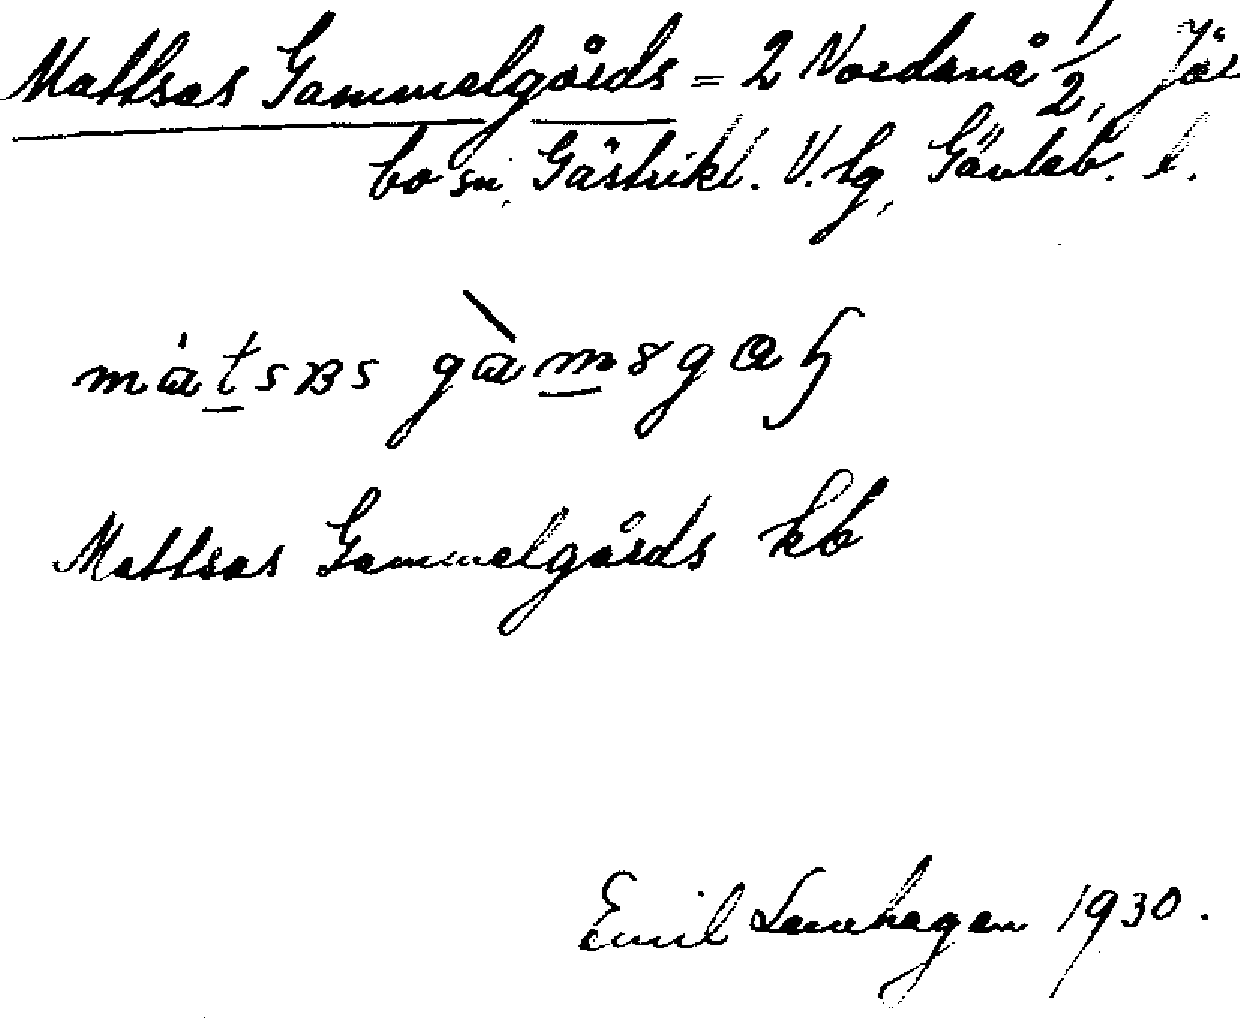 Mattsas Gammelgårds = 2 Nordanå 1/2, Jär
bo sn, Gästrikl. V. tg, Gävleb. l.
màtsɐs gàmsgaɧ
Mattsas Gammelgårds kb
Emil 1930.